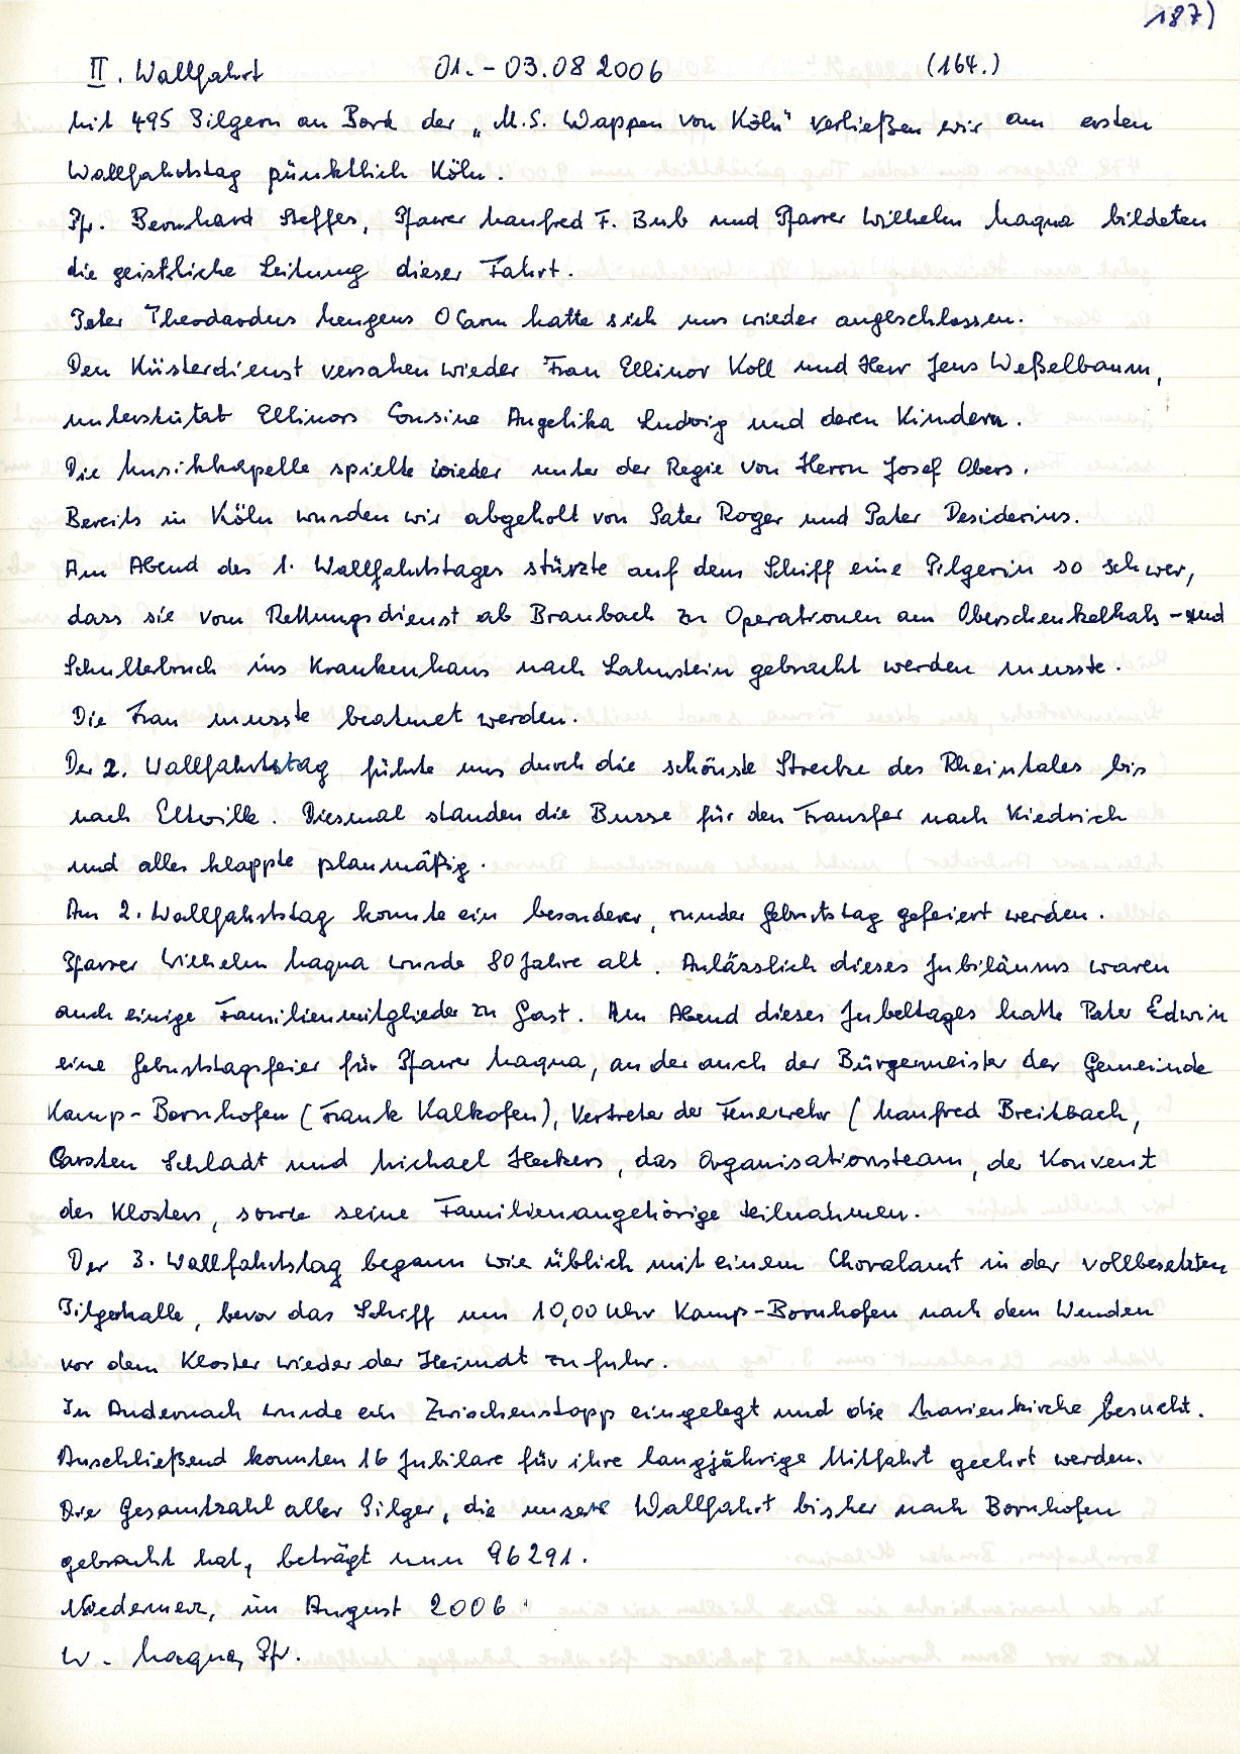 187)
II. Wallfahrt 01.-03.08 2006 (164.)
Mit 495 Pilgern an Bord der „M.S. Wappen von Köln" verließen wir am ersten
Wallfahrtstag pünktlich Köln.
Pfr. Bernhard Steffes, Pfarrer Manfred F. Bub und Pfarrer Wilhelm Maqua bildeten
die geistliche Leitung dieser Fahrt.
Pater Theodardus Mengens OCarm hatte sich uns wieder angeschlossen.
Den Küsterdienst versahen wieder Frau Ellinor Koll und Herr Jens Weßelbaum,
unterstützt Ellinors Cousine Angelika Ludwig und deren Kindern.
Die Musikkapelle spielte wieder unter der Regie von Herrn Josef Obers.
Bereits in Köln wurden wir abgeholt von Pater Roger und Pater Desiderius.
Am Abend des 1. Wallfahrtstages stürzte auf dem Schiff eine Pilgerin so schwer,
dass sie vom Rettungsdienst ab Braubach zu Operationen am Oberschenkelhals - und
Schulterbruch ins Krankenhaus nach Lahnstein gebracht werden musste.
Die Frau musste beatmet werden.
Der 2. Wallfahrtstag führte uns durch die schönste Strecke des Rheintales bis
nach Eltville. Diesmal standen die Busse für den Transfer nach Kiedrich
und alles klappte planmäßig.
Am 2. Wallfahrtstag konnte ein besonderer, runder Geburtstag gefeiert werden.
Pfarrer Wilhelm Maqua wurde 80 Jahre alt. Anlässlich dieses Jubiläums waren
auch einige Familienmitglieder zu Gast. Am Abend dieses Jubeltages hatte Pater Edwin
eine Geburtstagsfeier für Pfarrer Maqua, an der auch der Bürgermeister der Gemeinde
Kamp-Bornhofen (Frank Kalkofen), Vertreter der Feuerwehr (Manfred Breitbach,
Carsten Schladt und Michael Heckers, das Organisationsteam, der Konvent
des Klosters, sowie seine Familienangehörige teilnahmen.
Der 3. Wallfahrtstag begann wie üblich mit einem Choralamt in der vollbesetzten
Pilgerhalle, bevor das Schiff um 10,00 Uhr Kamp-Bornhofen nach dem Wenden
vor dem Kloster wieder der Heimat zu fuhr.
In Andernach wurde ein Zwischenstopp eingelegt und die Marienkirche besucht.
Anschließend konnten 16 Jubilare für ihre langjährige Mitfahrt geehrt werden.
Die Gesamtzahl aller Pilger, die unsere Wallfahrt bisher nach Bornhofen
gebracht hat, beträgt nun 96291.
Niedermerz, im August 2006
W. Maqua, Pfr.